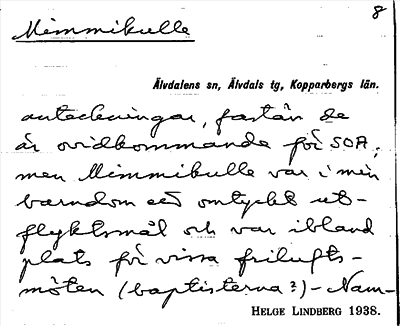 8
Mimmikulle
Älvdalens sn, Älvdals tg, Kopparbergs län.
anteckningar, fastän de
är ovidkommande för SOA;
men Mimmikulle var i min
barndom ett omtyckt ut-
flyktsmål och var ibland
plats för vissa frilufts-
möten (baptisterna?) - Nam-
HELGE LINDBERG 1938.